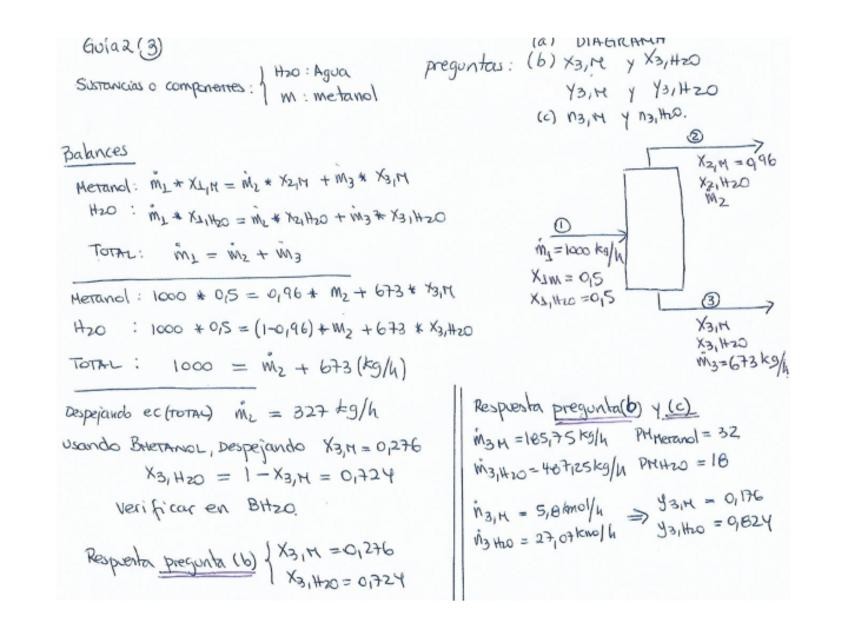 Guía 2 (3)
Sustancias o componentes: { H2O : Agua
m : metanol
(a) DIAGRAMA
preguntas: (b) X3,M y X3,H2O
Y3,M y Y3,H2O
(c) n3,M y n3,H2O.
Balances
Metanol: ṁ1 * X1,M = ṁ2 * X2,M + ṁ3 * X3,M
H2O : ṁ1 * X1,H2O = ṁ2 * X2,H2O + ṁ3 * X3,H2O
TOTAL: ṁ1 = ṁ2 + ṁ3
2
X2,M = 0,96
X2,H2O
ṁ2
1
ṁ1 = 1000 kg/h
X1M = 0,5
X1,H2O = 0,5
3
X3,M
X3,H2O
ṁ3 = 673 kg/h
Metanol : 1000 * 0,5 = 0,96 * m2 + 673 * X3,M
H2O : 1000 * 0,5 = (1-0,96) * m2 + 673 * X3,H2O
TOTAL : 1000 = ṁ2 + 673 (kg/h)
Despejando ec (TOTAL) ṁ2 = 327 kg/h
usando BMETANOL, Despejando X3,M = 0,276
X3,H2O = 1 - X3,M = 0,724
Verificar en BH2O.
Respuesta pregunta (b) { X3,M = 0,276
X3,H2O = 0,724
Respuesta pregunta (b) y (c)
ṁ3M = 185,75 kg/h PMMetanol = 32
ṁ3,H2O = 487,25 kg/h PMH2O = 18
ṅ3,M = 5,8 kmol/h ⇒ y3,M = 0,176
ṅ3H2O = 27,07 kmol/h y3,H2O = 0,824